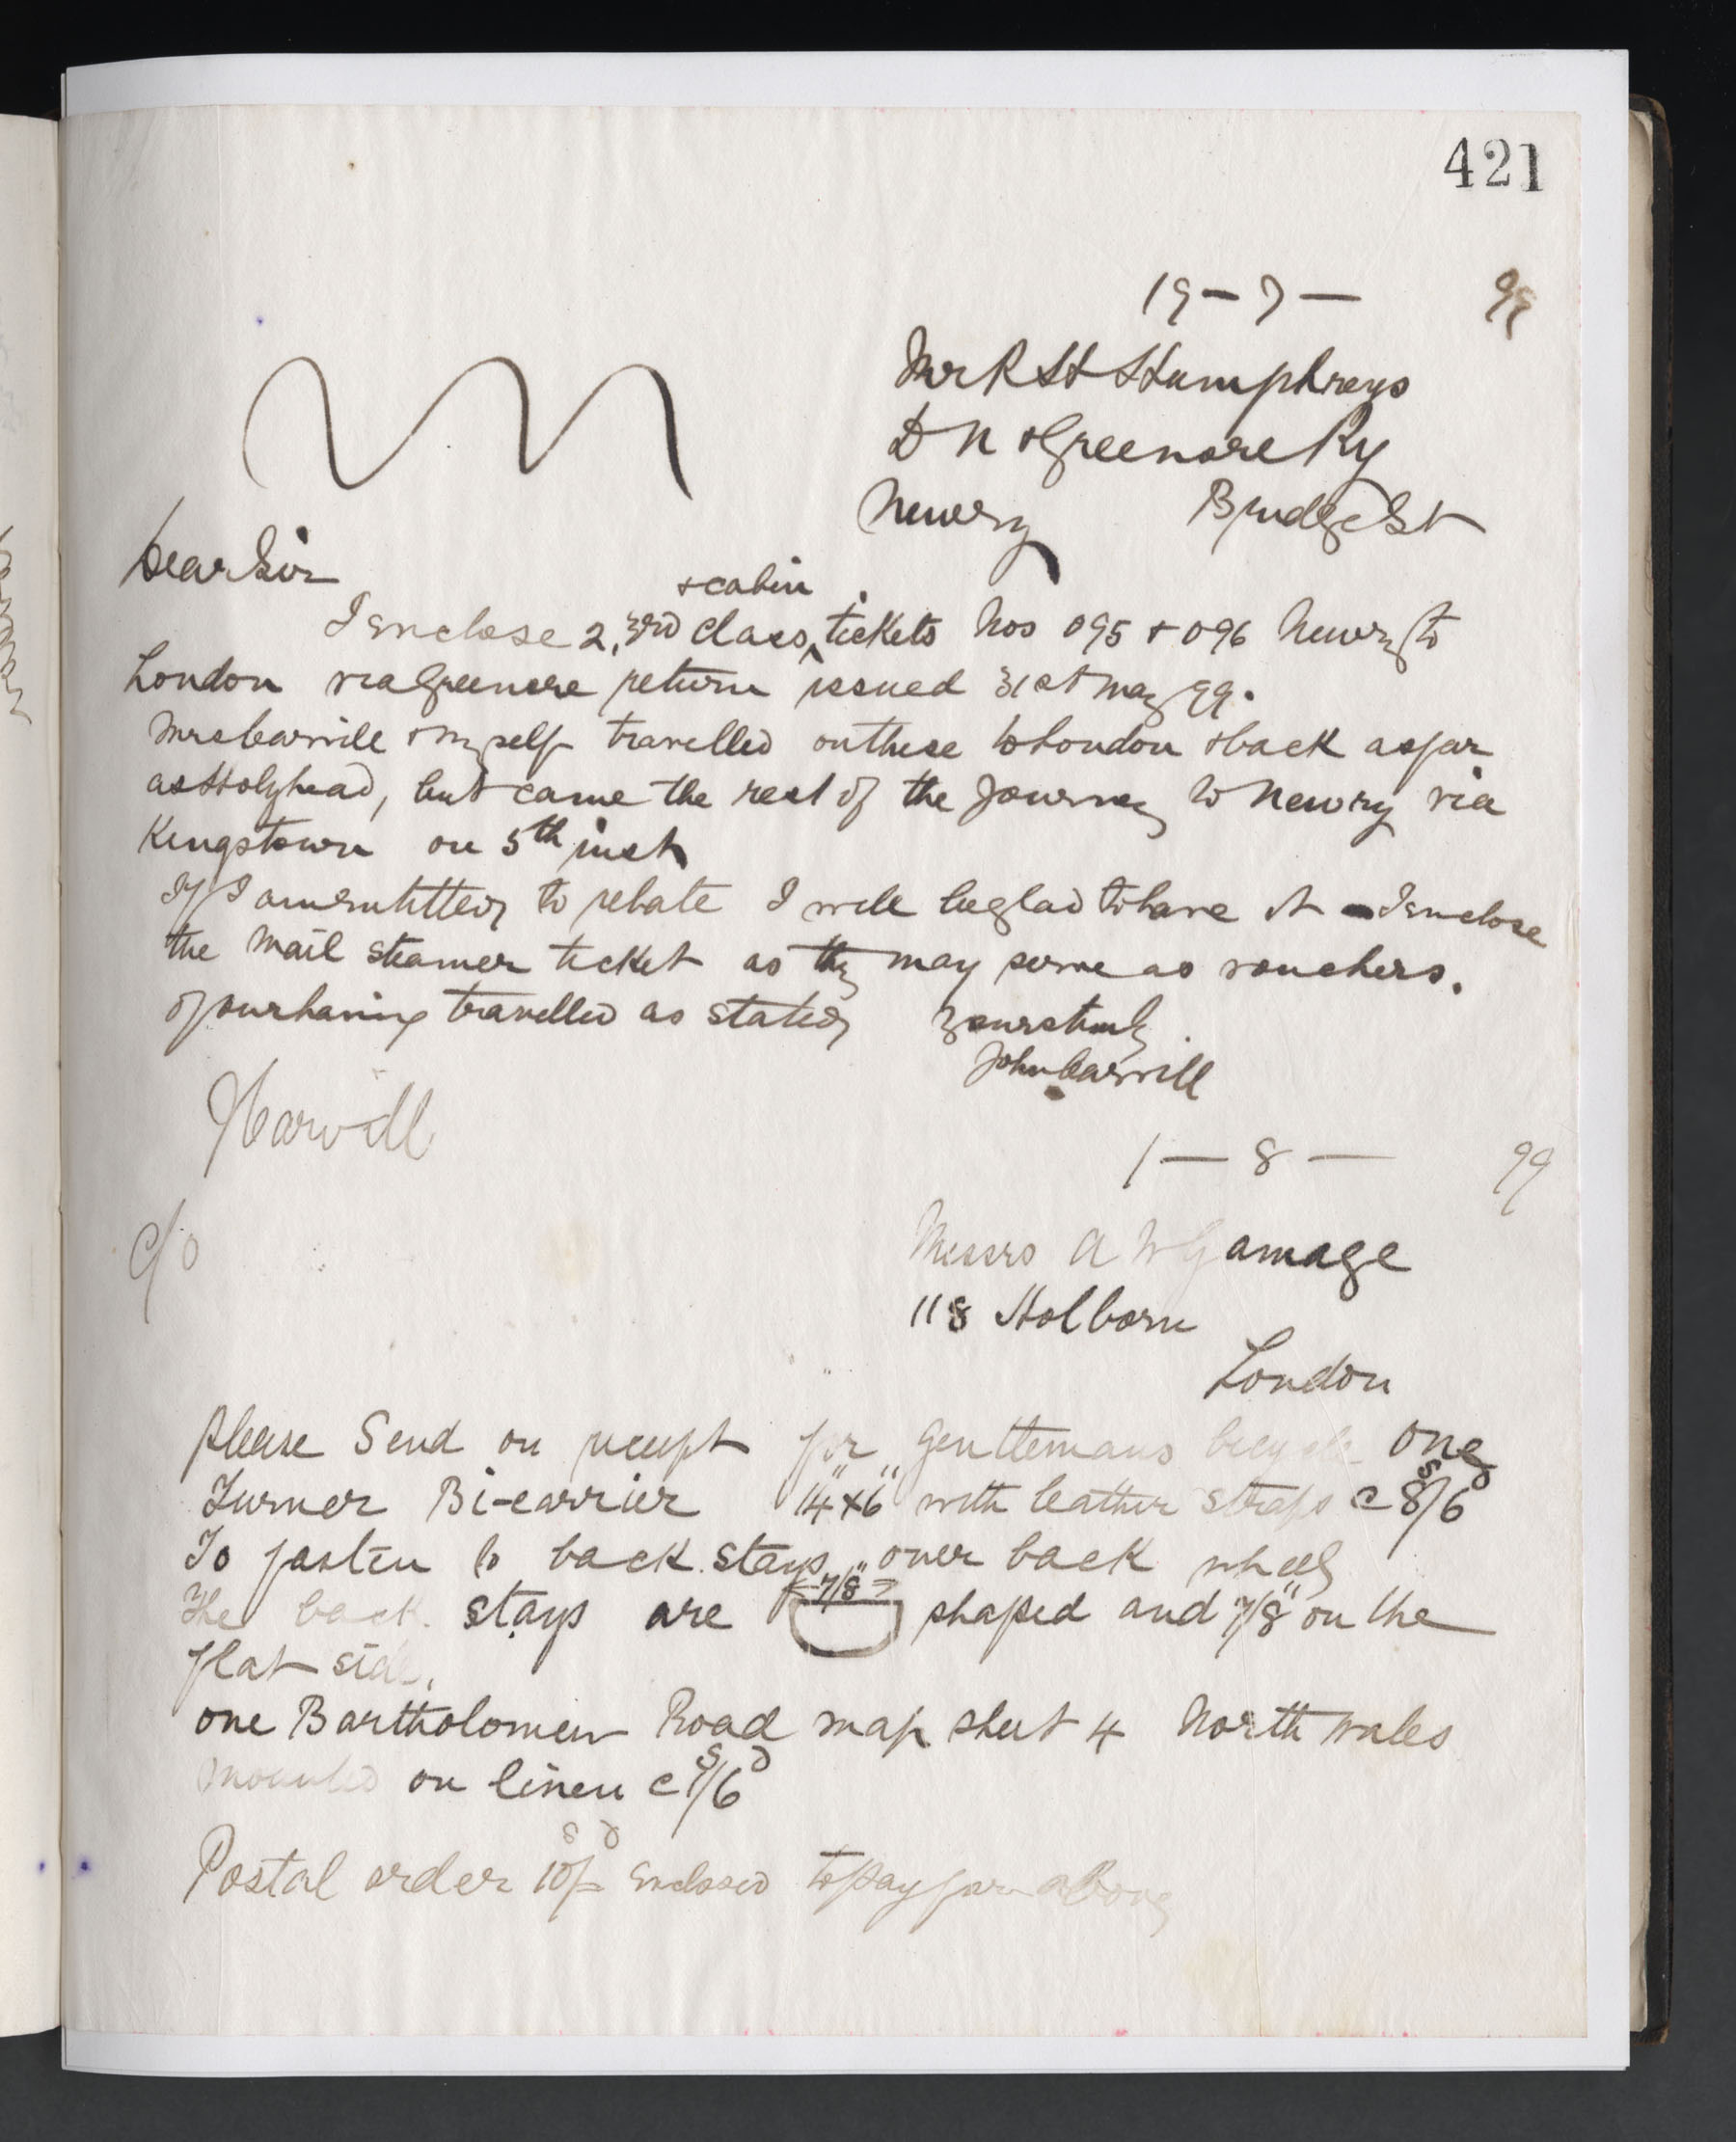 421
19 - 7 - 99
Mr R H Humphreys
D N & Greenore Ry
Newry Bridge St
Dear Sir
& cabin
I enclose 2, 3rd class tickets Nos 095 & 096 Newry to
London via Greenore return issued 31st May 99.
Mrs Carvill & myself travelled on these to London & back as far
as Holyhead, but came the rest of the Journey to Newry via
Kingstown on 5th inst
If I am entitled to rebate I will be glad to have it - I enclose
the Mail steamer ticket as they may serve as vouchers.
of our having travelled as stated yours truly
John Carvill
JCarvill
1 - 8 - 99
c/o
Messrs A W Gamage
118 Holborn
London
Please Send on receipt for gentlemans bicycle one
Turner Bi-carrier 14" x 6" with leather straps @ 8s/6d
To fasten to back stays over back wheel
<7/8"> 
The back stays are shaped and 7/8" on the
flat side.
one Bartholomew Road map sheet 4 North Wales
mounted on linen @ 1s/6d
Postal order 10s/-d Enclosed to pay for above